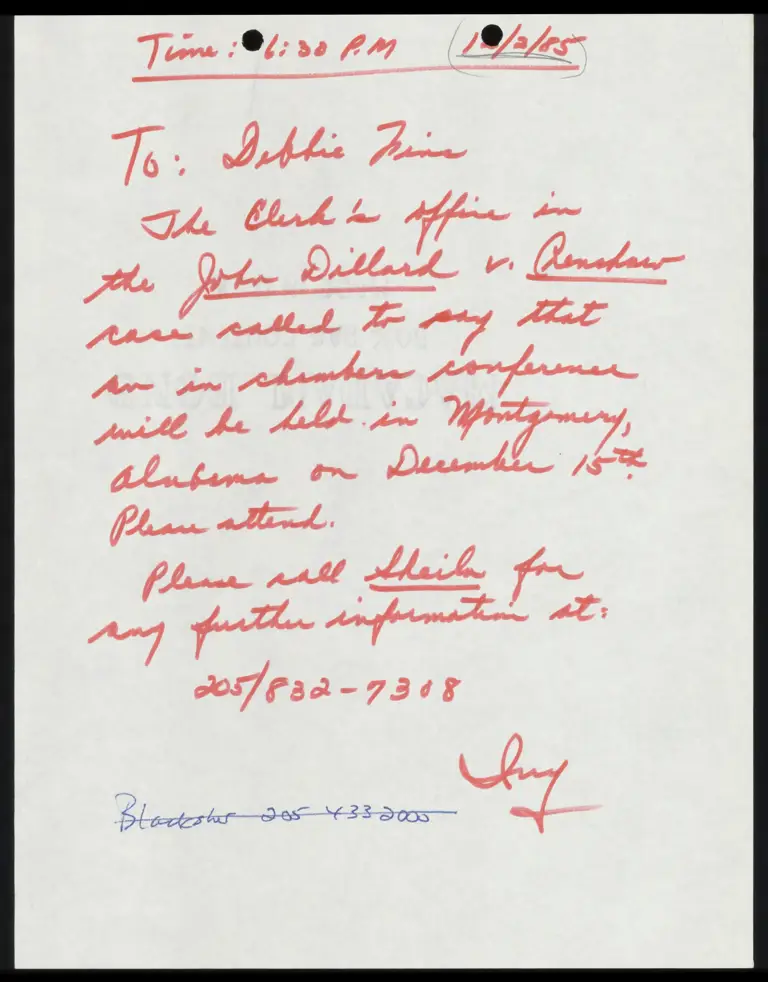 Time: 6:30 P.M 12/2/85
To: Debbie Fins
The Clerk's office in
the John Dillard v. Crenshaw
case called to say that
an in chambers conference
will be held in Montgomery,
Alabama on December 15th.
Please attend.
Please call Sheila for
any further information at:
205/832-7308
Blacksher 205 433 2000